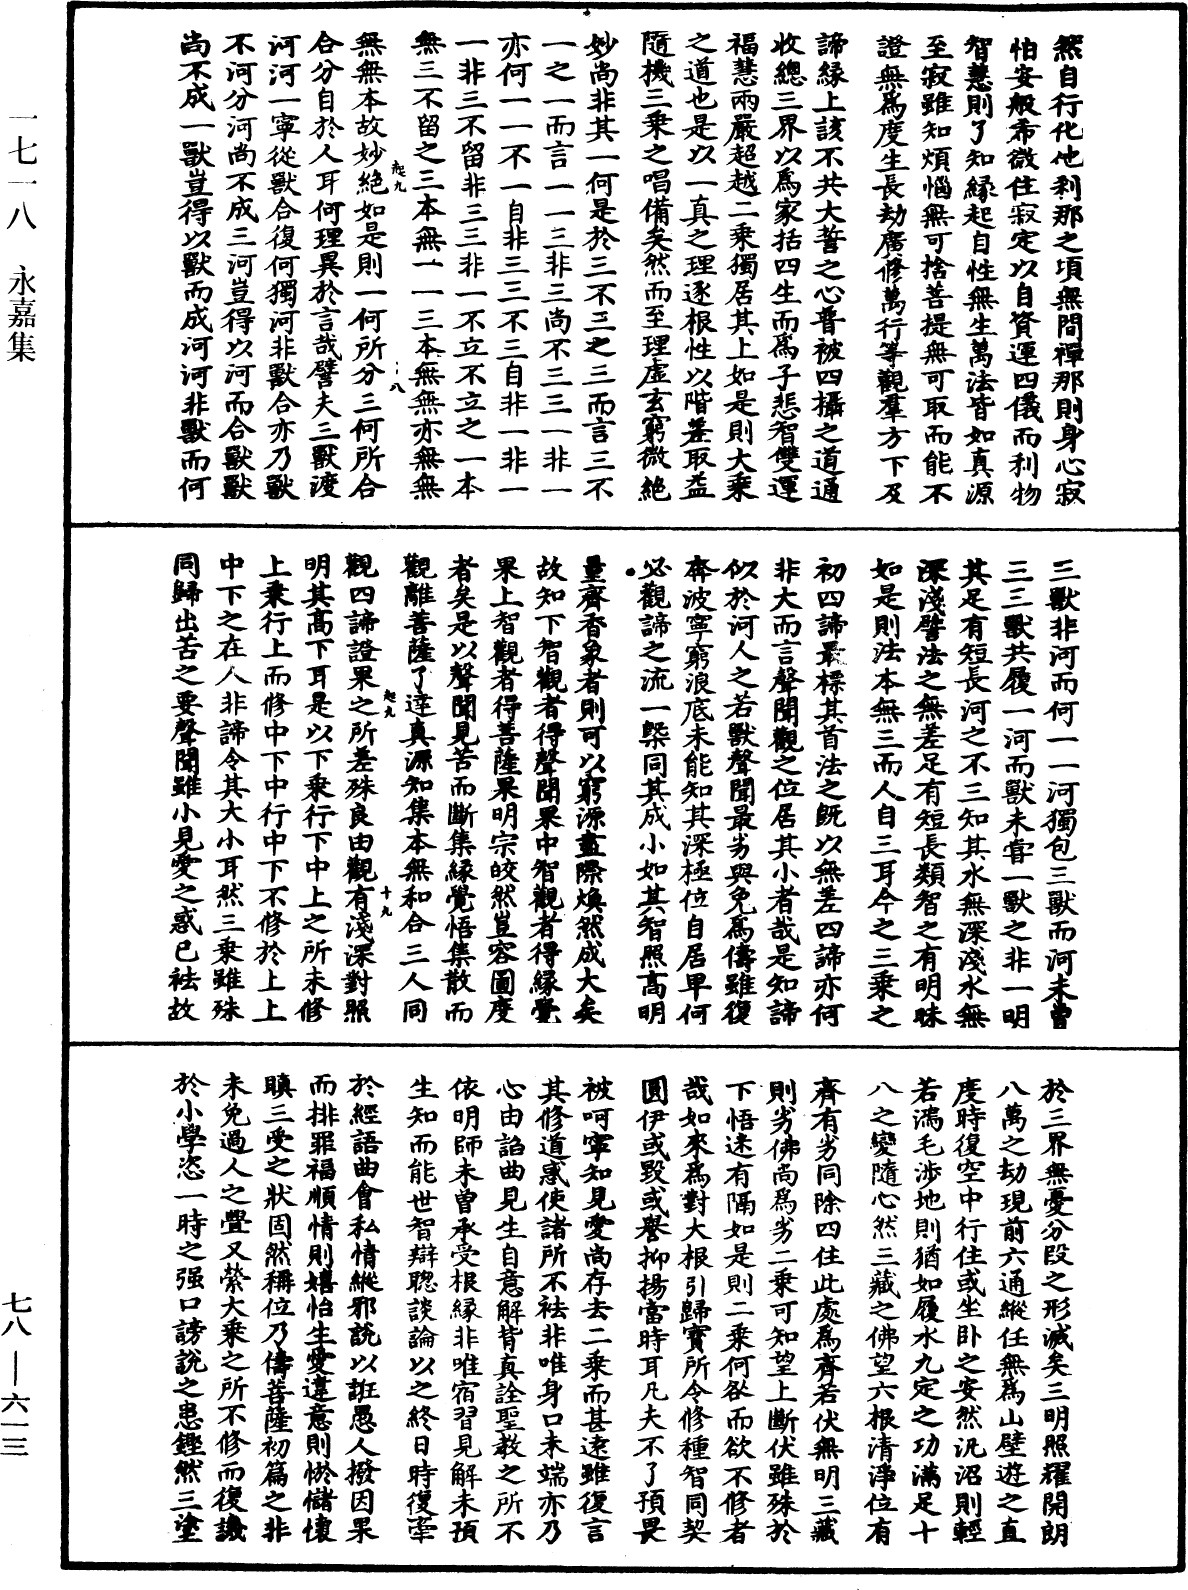 一七一八　永嘉集
然自行化他刹那之頃無間禪那則身心寂
怕安般希微住寂定以自資運四儀而利物
智慧則了知緣起自性無生萬法皆如真源
至寂雖知煩惱無可捨菩提無可取而能不
證無爲度生長劫廣修萬行等觀羣方下及
諦緣上該不共大誓之心普被四攝之道通
收總三界以爲家括四生而爲子悲智雙運
福慧兩嚴超越二乗獨居其上如是則大乗
之道也是以一真之理逐根性以階差取益
隨機三乗之唱備矣然而至理虚玄窮微絶
妙尚非其一何是於三不三之三而言三不
一之一而言一一三非三尚不三三一非一
亦何一一不一自非三三不三自非一非一
一非三不留非三三非一不立不立之一本
無三不留之三本無一一三本無無亦無無
無無本故妙絶如是則一何所分三何所合
合分自於人耳何理異於言哉譬夫三獸渡
河河一寧從獸合復何獨河非獸合亦乃獸
不河分河尚不成三河豈得以河而合獸獸
尚不成一獸豈得以獸而成河河非獸而何
三獸非河而何一一河獨包三獸而河未曾
三三獸共履一河而獸未甞一獸之非一明
其足有短長河之不三知其水無深淺水無
深淺譬法之無差足有短長類智之有明昧
如是則法本無三而人自三耳今之三乗之
初四諦最標其首法之旣以無差四諦亦何
非大而言聲聞觀之位居其小者哉是知諦
似於河人之若獸聲聞最劣與兔爲儔雖復
奔波寧窮浪底未能知其深極位自居卑何
必觀諦之流一槩同其成小如其智照高明
量齊香象者則可以窮源盡際煥然成大矣
故知下智觀者得聲聞果中智觀者得緣覺
果上智觀者得菩薩果明宗皎然豈容圖度
者矣是以聲聞見苦而斷集緣覺悟集散而
觀離菩薩了達真源知集本無和合三人同
觀四諦證果之所差殊良由觀有淺深對照
明其高下耳是以下乗行下中上之所未修
上乗行上而修中下中行中下不修於上上
中下之在人非諦令其大小耳然三乗雖殊
同歸出苦之要聲聞雖小見愛之惑已祛故
於三界無憂分段之形滅矣三明照耀開朗
八萬之劫現前六通縱任無爲山壁遊之直
度時復空中行住或坐卧之安然汎沼則輕
若鴻毛涉地則猶如履水九定之功滿足十
八之變隨心然三藏之佛望六根清淨位有
齊有劣同除四住此處爲齊若伏無明三藏
則劣佛尚爲劣二乗可知望上斷伏雖殊於
下悟迷有隔如是則二乗何咎而欲不修者
哉如來爲對大根引歸寶所令修種智同契
圓伊或毀或譽抑揚當時耳凡夫不了預畏
被呵寧知見愛尚存去二乗而甚逺雖復言
其修道惑使諸所不祛非唯身口未端亦乃
心由諂曲見生自意解背真詮聖教之所不
依明師未曾承受根緣非唯宿習見解未預
生知而能世智辯聦談論以之終日時復牽
於經語曲會私情縱邪說以誑愚人撥因果
而排罪福順情則嬉怡生愛違意則惿𢤱懷
瞋三受之狀固然稱位乃儔菩薩初篇之非
未免過人之釁又縈大乗之所不修而復譏
於小學恣一時之强口謗說之患鏗然三塗
七八——六一三